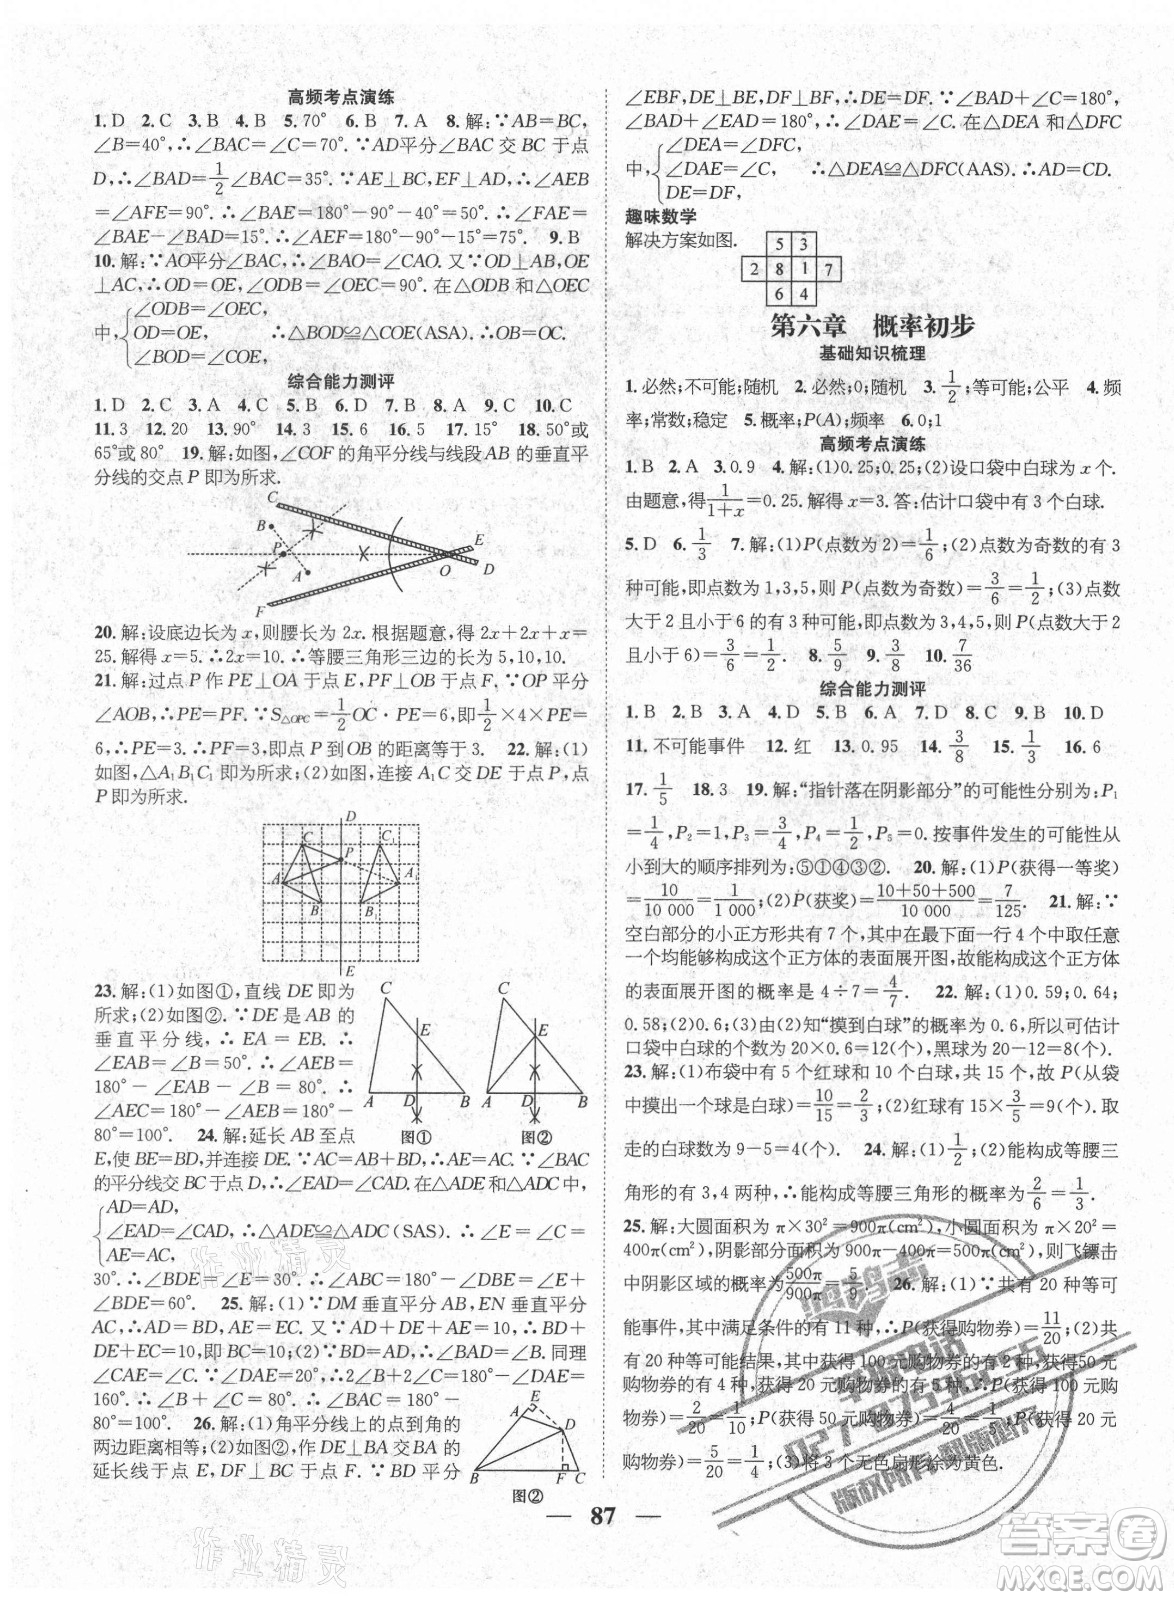 高频考点演练
1.D 2.C 3.B 4.B 5.70° 6.B 7.A 8.解:∵AB=BC,
∠B=40°,∴∠BAC=∠C=70°.∵AD平分∠BAC交BC于点
D,∴∠BAD=1/2∠BAC=35°.∵AE⊥BC,EF⊥AD,∴∠AEB
=∠AFE=90°.∴∠BAE=180°-90°-40°=50°.∴∠FAE=
∠BAE-∠BAD=15°.∴∠AEF=180°-90°-15°=75°. 9.B
10.解:∵AO平分∠BAC,∴∠BAO=∠CAO.又∵OD⊥AB,OE⊥
AC,∴OD=OE,∠BDO=∠OEC=90°.在△BOD与△OEC
中,{∠BDO=∠OEC, OD=OE, ∠BOD=∠COE, ∴△BOD≌△COE(ASA).∴OB=OC.
综合能力测评
1.D 2.C 3.C 4.C 5.B 6.D 7.B 8.A 9.C 10.C
11.3 12.20 13.90° 14.3 15.6 16.6 17.15° 18.50°或
65°或80° 19.解:如图,∠COF的角平分线与线段AB的垂直平
分线的交点P即为所求.
C
B
E
P
A
O
D
F
20.解:设底边长为x,则腰长为2x.根据题意,得2x+2x+x=
25.解得x=5.∴2x=10.∴等腰三角形三边的长为5,10,10.
21.解:过点P作PE⊥OA于点E,PF⊥OB于点F.∵OP平分
∠AOB,∴PE=PF.∵S△OPC=1/2OC·PE=6,即1/2×4×PE=
6,∴PE=3.∴PF=3,即点P到OB的距离等于3. 22.解:(1)
如图,△A₁B₁C₁即为所求;(2)如图,连接A₁C交DE于点P,
点P即为所求.
D
C
C₁
P
A
A₁
B
B₁
E
23.解:(1)如图①,直线DE即为
所求;(2)如图②.∵DE是AB的
垂直平分线,∴EA=EB.∴
∠EAB=∠B=50°.∴∠AEB=
180°-∠EAB-∠B=80°.∴
∠AEC=180°-∠AEB=180°-
80°=100°. 24.解:延长AB至点
C
E
A D B
图①
C
E
A D B
图②
E,使BE=BD,并连接DE.∵AC=AB+BD,∴AC=AE.∵∠BAC
的平分线交BC于点D,∴∠EAD=∠CAD.在△ADE与△ADC中,
{AD=AD, ∠EAD=∠CAD, AE=AC, ∴△ADE≌△ADC(SAS).∴∠E=∠C=
30°.∴∠BDE=∠E=30°.∴∠ABC=180°-∠DBE=∠BDE+∠E,
∠BDE=60°. 25.解:(1)∵DM垂直平分AB,EN垂直平分
AC,∴AD=BD,AE=CE.又∵△ADE的周长是10,∴AD+DE+
AE=10.∴BD+DE+CE=10,即BC=10;(2)∵AD=BD,∴∠B=
∠BAD.又∵∠DAE=20°,∴2∠B+2∠C=180°-∠DAE=
160°.∴∠B+∠C=80°.∴∠BAC=180°-(∠B+∠C)=
180°-80°=100°. 26.解:(1)角平分线上的点到角的
两边距离相等;(2)如图②,作DE⊥BA交BA的
延长线于点E,DF⊥BC于点F.∵BD平分
E
A
D
B F C
图②
∠EBF,DE⊥BE,DF⊥BF,∴DE=DF.∵∠BAD+∠C=180°,
∠BAD+∠EAD=180°,∴∠DAE=∠C.在△DEA和△DFC
中,{∠DEA=∠DFC, ∠DAE=∠C, DE=DF, ∴△DEA≌△DFC(AAS).∴AD=CD.
趣味数学
解决方案如图.
5 3
2 8 1 7
6 4
第六章 概率初步
基础知识梳理
1.必然;不可能;随机 2.必然;0;随机 3.1/2;等可能;公平 4.频
率;常数;稳定 5.概率;P(A);频率 6.0;1
高频考点演练
1.B 2.A 3.0.9 4.解:(1)0.25;0.25;(2)设口袋中白球为x个.
由题意,得1/(1+x)=0.25.解得x=3.答:估计口袋中有3个白球.
5.D 6.1/3 7.解:(1)P(点数为2)=1/6;(2)点数为奇数的有3
种可能,即点数为1,3,5,则P(点数为奇数)=3/6=1/2;(3)点数
大于2且小于6有3种可能,即点数为3,4,5,则P(点数大于
2且小于6)=3/6=1/2. 8.5/9 9.3/8 10.7/36
综合能力测评
1.B 2.B 3.C 4.D 5.B 6.A 7.A 8.D 9.B 10.D
11.不可能事件 12.红 13.0.95 14.3/8 15.1/3 16.6
17.1/5 18.3 19.解:“指针落在阴影部分”的可能性分别为:P₁
=1/4,P₂=1,P₃=3/4,P₄=1/2,P₅=0.按事件发生的可能性从
小到大的顺序排列为:⑤①④③②. 20.解:(1)P(获得一等奖)
=10/10 000=1/1 000;(2)P(获奖)=(10+50+500)/10 000=7/125. 21.解:∵
空白部分的小正方形共有7个,其中在最下面一行4个中取任意
一个均能够构成这个正方体的表面展开图,故能构成这个正方体
的表面展开图的概率是4÷7=4/7. 22.解:(1)0.59;0.64;
0.58;(2)0.6;(3)由(2)知“摸到白球”的概率为0.6,所以可估计
口袋中白球的个数为20×0.6=12(个),黑球为20-12=8(个).
23.解:(1)布袋中有5个红球和10个白球,共15个,故P(从袋
中摸出一个球是白球)=10/15=2/3;(2)红球有15×3/5=9(个),取
走的白球数为9-5=4(个). 24.解:(1)1/2;(2)能构成等腰三
角形的有3,4两种,∴能构成等腰三角形的概率是2/6=1/3.
25.解:大圆面积为π×30²=900π(cm²),小圆面积为π×20²=
400π(cm²),阴影部分面积为900π-400π=500π(cm²),则飞镖击
中阴影区域的概率为500π/900π=5/9. 26.解:(1)∵共有20种等可
能事件,其中满足条件的有11种,∴P(获得购物券)=11/20;(2)共
有20种等可能结果,其中获得100元购物券的有2种,获得50元
购物券的有4种,获得20元购物券的有5种,∴P(获得100元
购物券)=2/20=1/10,P(获得50元购物券)=4/20=1/5,P(获得20元
购物券)=5/20=1/4;(3)将3个无色扇形涂为黄色.
— 87 —
作业精灵
作业精灵
答案卷
MXQE.COM